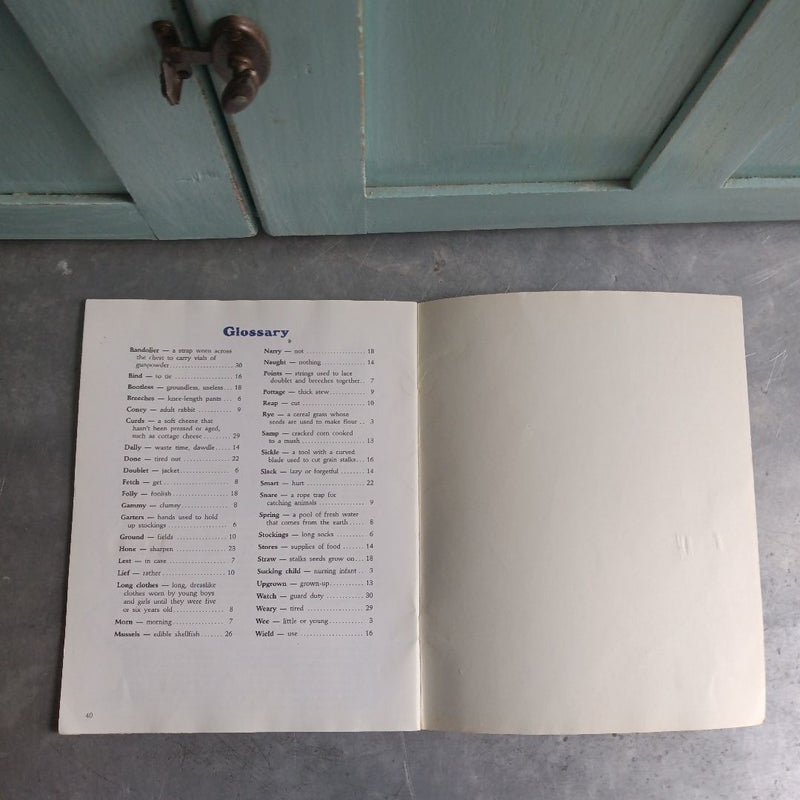 Glossary
Bandolier — a strap worn across
the chest to carry vials of
gunpowder .................... 30
Bind — to tie .................... 16
Bootless — groundless, useless... 18
Breeches — knee-length pants .... 6
Coney — adult rabbit ............ 9
Curds — a soft cheese that
hasn't been pressed or aged,
such as cottage cheese ......... 29
Dally — waste time, dawdle ..... 14
Done — tired out ................ 22
Doublet — jacket ................ 6
Fetch — get ..................... 8
Folly — foolish ................. 18
Gammy — clumsy .................. 8
Garters — bands used to hold
up stockings .................... 6
Ground — fields ................. 10
Hone — sharpen .................. 23
Lest — in case .................. 7
Lief — rather ................... 10
Long clothes — long, dresslike
clothes worn by young boys
and girls until they were five
or six years old ................ 8
Morn — morning .................. 7
Mussels — edible shellfish ...... 26
Narry — not ..................... 18
Naught — nothing ................ 14
Points — strings used to lace
doublet and breeches together .. 7
Pottage — thick stew ............ 9
Reap — cut ...................... 10
Rye — a cereal grass whose
seeds are used to make flour .. 3
Samp — cracked corn cooked
to a mush ....................... 13
Sickle — a tool with a curved
blade used to cut grain stalks... 16
Slack — lazy or forgetful ....... 14
Smart — hurt .................... 22
Snare — a rope trap for
catching animals ................ 9
Spring — a pool of fresh water
that comes from the earth ..... 8
Stockings — long socks .......... 6
Stores — supplies of food ....... 14
Straw — stalks seeds grow on ... 18
Sucking child — nursing infant .. 3
Upgrown — grown-up .............. 13
Watch — guard duty .............. 30
Weary — tired ................... 29
Wee — little or young ........... 3
Wield — use ..................... 16
40